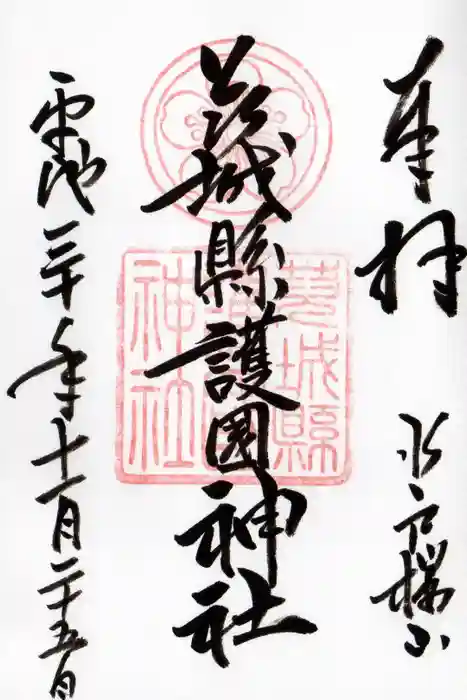 奉拝
水戸桜山
茨城縣護國神社
平成三十年十一月二十五日
茨城縣護國神社